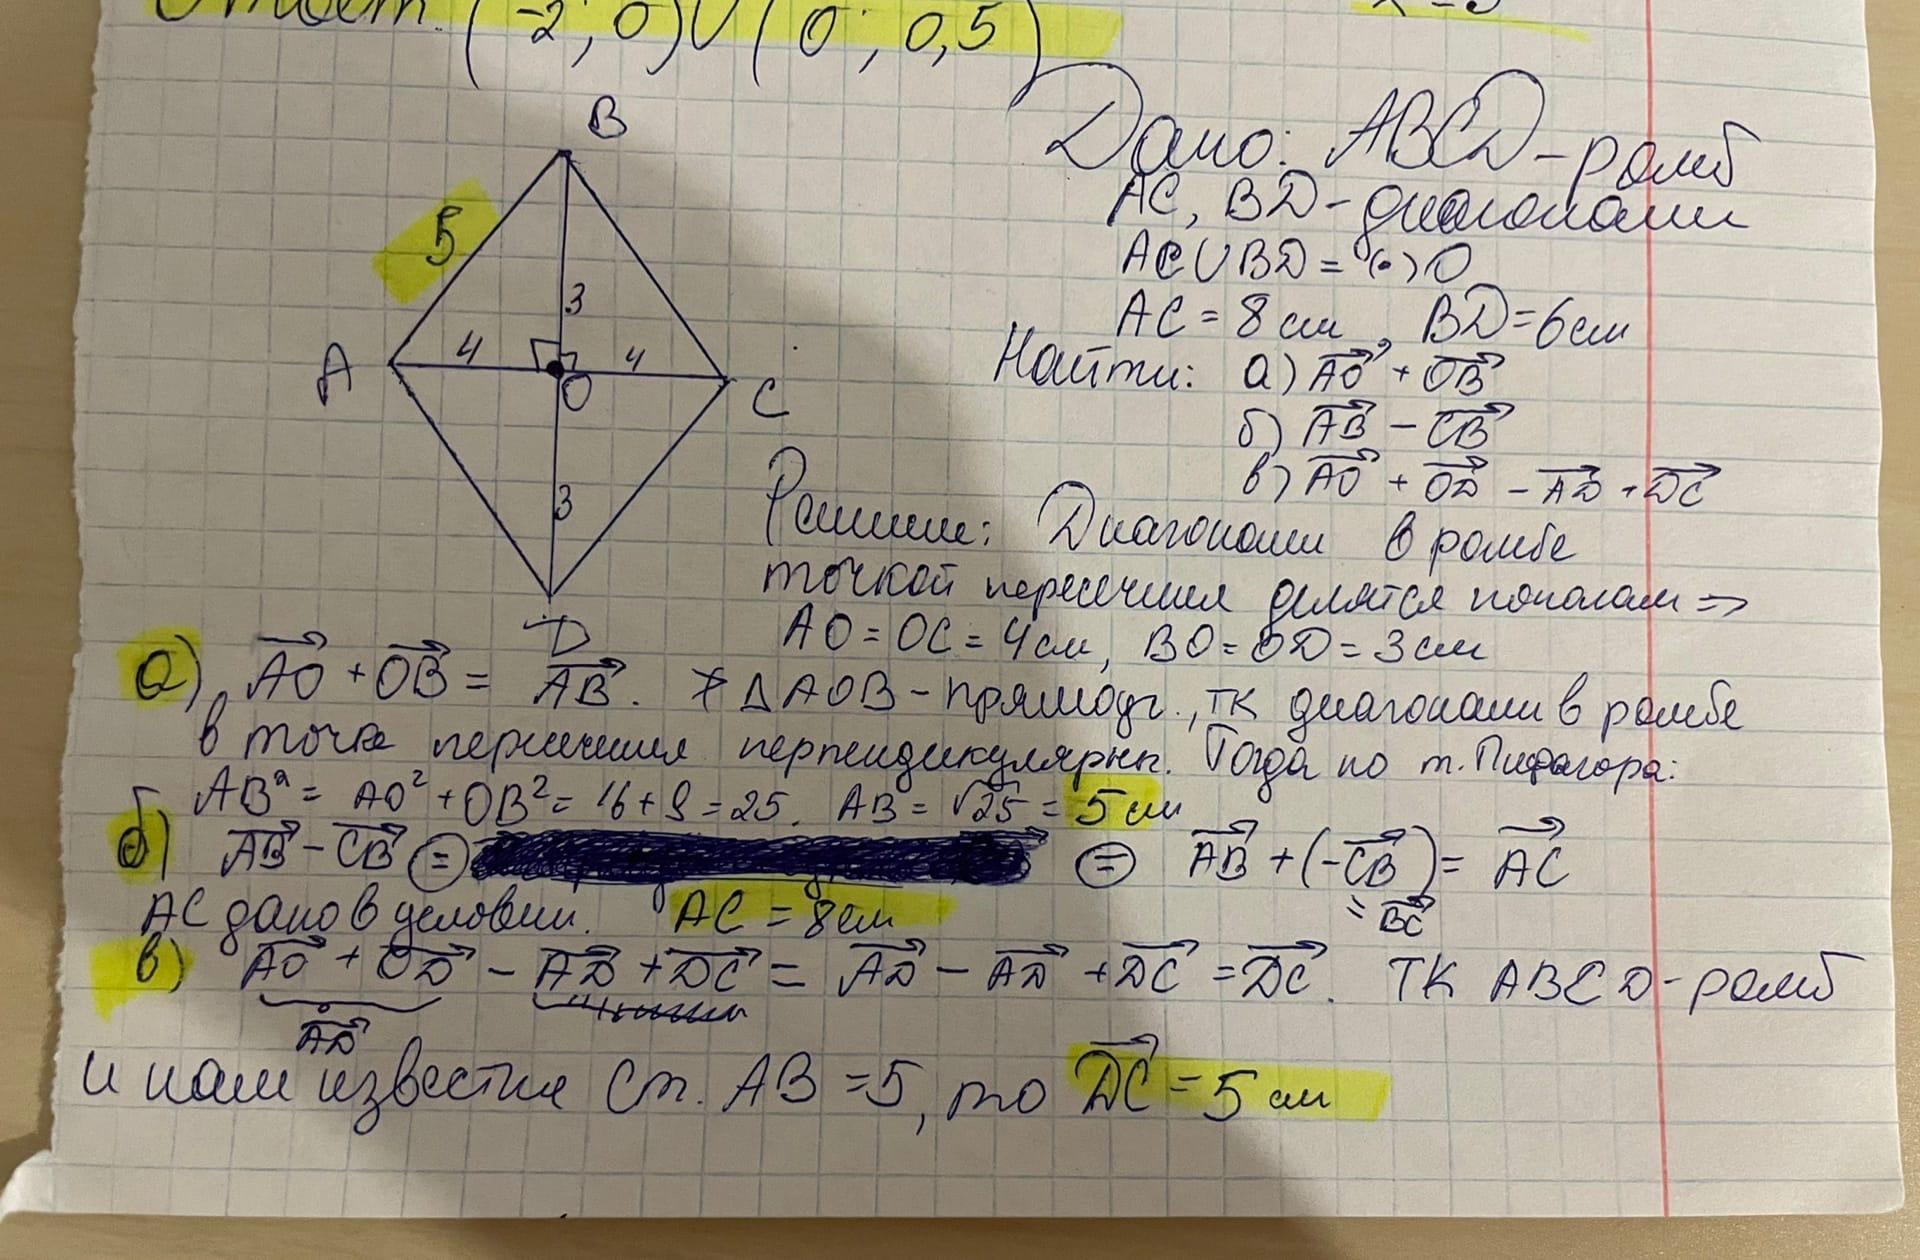 Ответ: (-2; 0) ∪ (0; 0,5)
B
5
3
A
4
4
O
C
3
D
Дано: ABCD – ромб
AC, BD – диагонали
AC ∪ BD = (•) O
AC = 8 см, BD = 6 см
Найти: а) AO + OB
б) AB − CB
в) AO + OD − AD + DC
Решение: Диагонали в ромбе
точкой пересечения делятся пополам =>
AO = OC = 4 см, BO = OD = 3 см
а) AO + OB = AB. ∆ AOB – прямоуг., тк диагонали в ромбе
в точке пересечения перпендикулярны. Тогда по т. Пифагора:
AB² = AO² + OB² = 16 + 9 = 25. AB = √25 = 5 см
б) AB − CB = = AB + (−CB) = AC
= BC
AC дано в условии. AC = 8 см
в) AO + OD − AD + DC = AD − AD + DC = DC. ТК ABCD – ромб
AD
и нам известна ст. AB = 5, то DC = 5 см